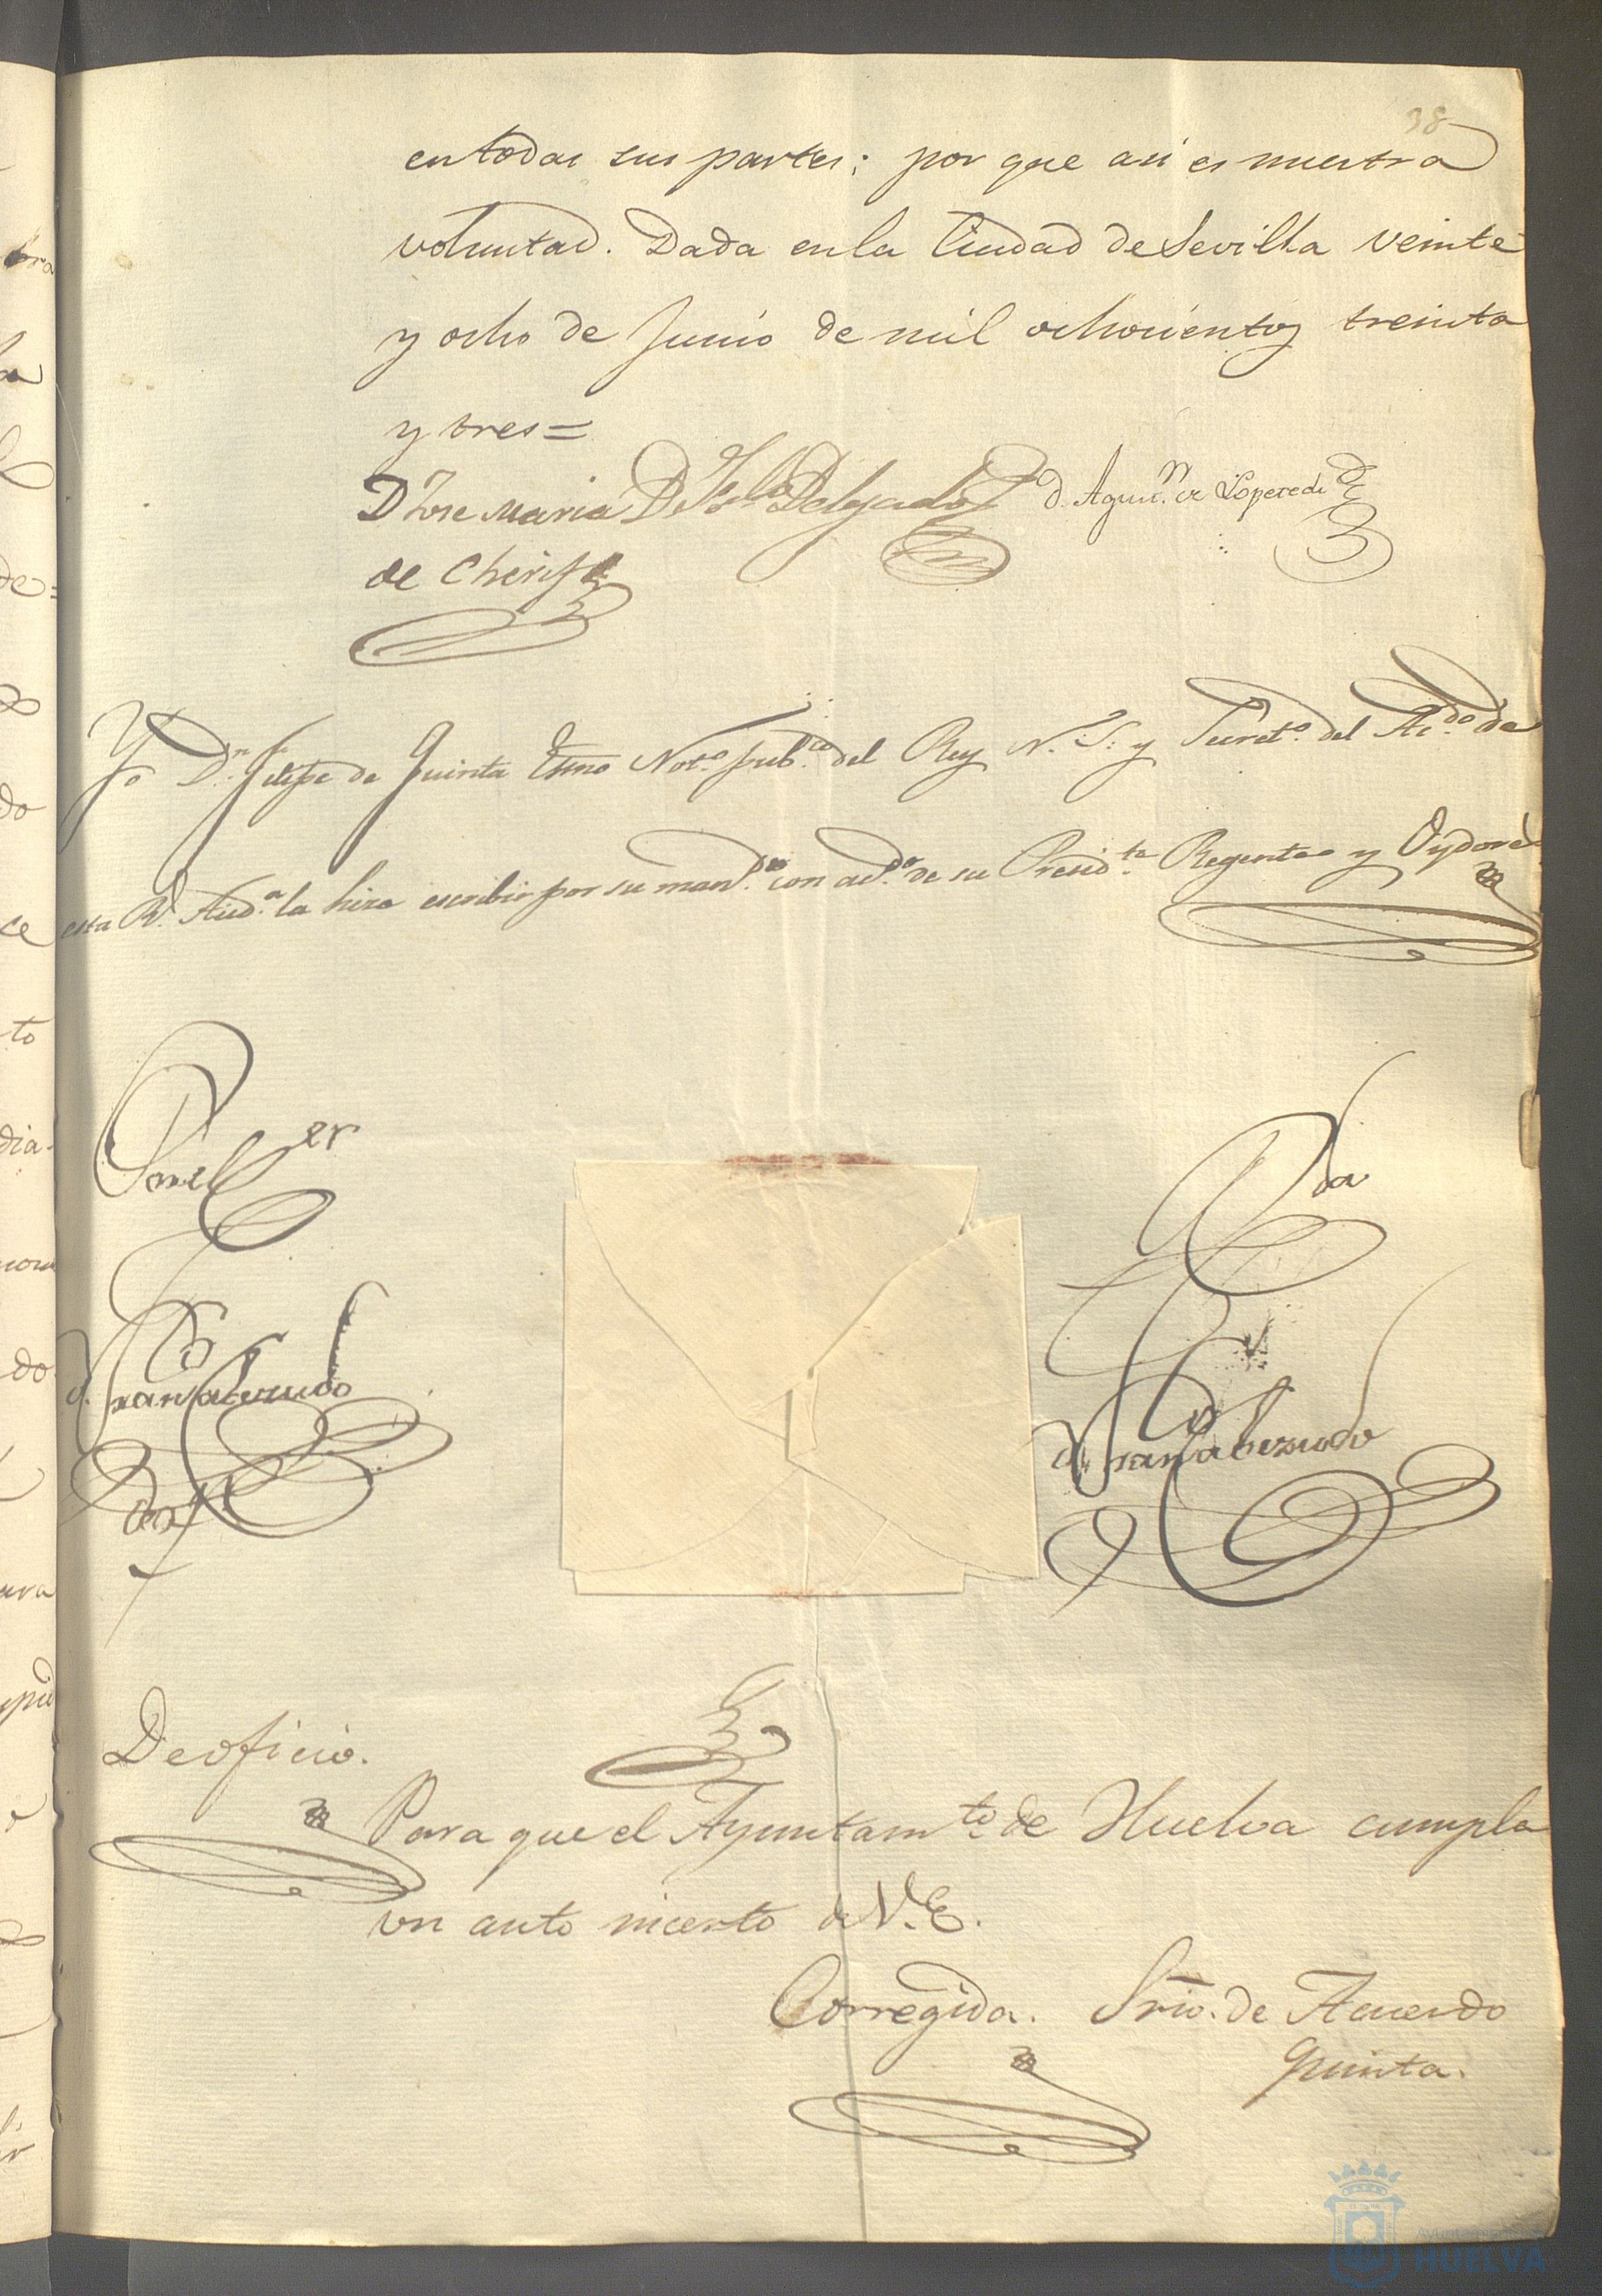 38
en todas sus partes; por que asi es nuestra
voluntad. Dada en la Ciudad de Sevilla veinte
y ocho de Junio de mil ochocientos treinta
y tres=
Dn Jose Maria D. Delgado D. Agust.n de
de
Yo D.n Felipe de Quinta Essno Not.o pub.co del Rey N. S. y Secret.o del Ac.do de
esta R.l Aud.a la hize escribir por su mand.o con acd.o de su Presid.te Regente y Oydores
er
da
De oficio.
Para que el Ayuntam.to de Huelva cumpla
un auto incerto de V.E.
Corregida. Srio. de Acuerdo
Quinta.
Ayuntamiento de
HUELVA